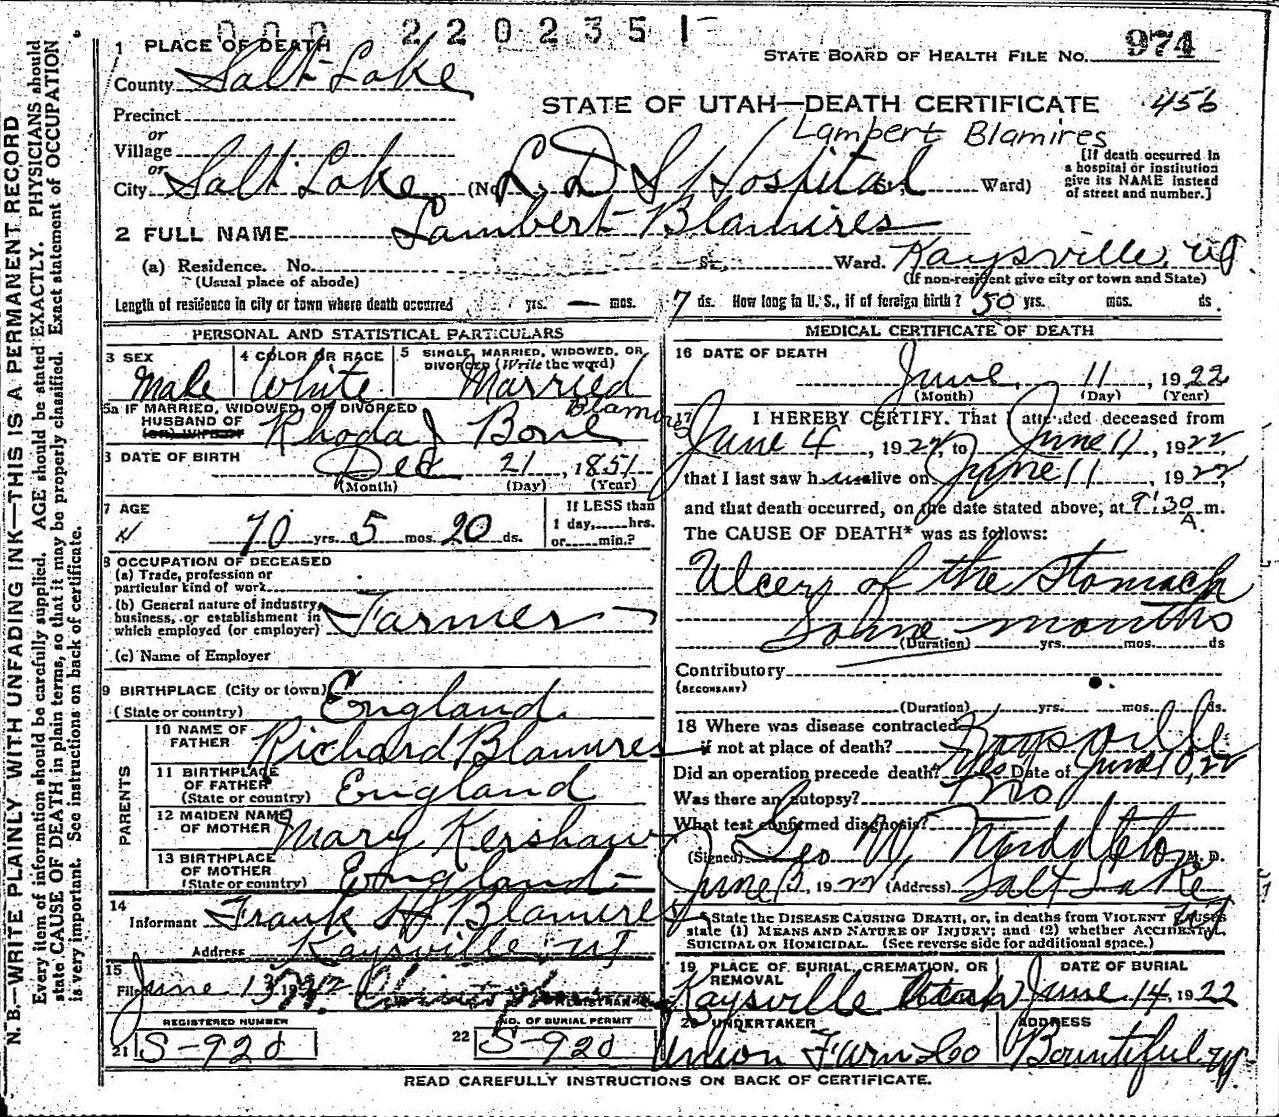 000 220235 1
1 PLACE OF DEATH
STATE BOARD OF HEALTH FILE NO. 974
County Salt Lake
STATE OF UTAH—DEATH CERTIFICATE 456
Precinct
Lambert Blamires
or
Village
or
City Salt Lake (No. L. D S Hospital Ward)
[If death occurred in
a hospital or institution
give its NAME instead
of street and number.]
2 FULL NAME Lambert Blamires
(a) Residence. No. St., Ward. Kaysville, Ut.
(Usual place of abode) (If non-resident give city or town and State)
Length of residence in city or town where death occurred yrs. — mos. 7 ds. How long in U. S., if of foreign birth? 50 yrs. mos. ds
PERSONAL AND STATISTICAL PARTICULARS
3 SEX
Male
4 COLOR OR RACE
White
5 SINGLE, MARRIED, WIDOWED, OR
DIVORCED (Write the word)
Married
5a IF MARRIED, WIDOWED, OR DIVORCED
HUSBAND OF
(or) WIFE OF
Rhoda J Bone Blamires
DATE OF BIRTH
Dec 21, 1851
(Month) (Day) (Year)
7 AGE
70 yrs. 5 mos. 20 ds.
If LESS than
1 day, hrs.
or min.?
8 OCCUPATION OF DECEASED
(a) Trade, profession or
particular kind of work
(b) General nature of industry,
business, or establishment in
which employed (or employer)
Farmer
(c) Name of Employer
9 BIRTHPLACE (City or town)
(State or country)
England
PARENTS
10 NAME OF
FATHER
Richard Blamires
11 BIRTHPLACE
OF FATHER
(State or country)
England
12 MAIDEN NAME
OF MOTHER
Mary Kershaw
13 BIRTHPLACE
OF MOTHER
(State or country)
England
14
Informant Frank H Blamires
Address Kaysville Ut
15
Filed June 13, 1922
REGISTRAR
REGISTERED NUMBER
21 S-920
NO. OF BURIAL PERMIT
22 S-920
MEDICAL CERTIFICATE OF DEATH
16 DATE OF DEATH
June 11, 1922
(Month) (Day) (Year)
17 I HEREBY CERTIFY. That I attended deceased from
June 4, 1922, to June 11, 1922
that I last saw him alive on June 11, 1922,
and that death occurred, on the date stated above, at 9:30 A. m.
The CAUSE OF DEATH* was as follows:
Ulcers of the Stomach
Some months
(Duration) yrs. mos. ds
Contributory
(SECONDARY)
(Duration) yrs. mos. ds.
18 Where was disease contracted
if not at place of death? Kaysville
Did an operation precede death? Yes Date of June 10, 22
Was there an autopsy? No
What test confirmed diagnosis?
(Signed) Geo W. Middleton M. D.
June 13, 1922 (Address) Salt Lake
State the DISEASE CAUSING DEATH, or, in deaths from VIOLENT CAUSES
state (1) MEANS AND NATURE OF INJURY; and (2) whether ACCIDENTAL,
SUICIDAL OR HOMICIDAL. (See reverse side for additional space.)
19 PLACE OF BURIAL, CREMATION, OR
REMOVAL
Kaysville Utah
DATE OF BURIAL
June 14, 1922
20 UNDERTAKER
Union Furn Co
ADDRESS
Bountiful Ut
READ CAREFULLY INSTRUCTIONS ON BACK OF CERTIFICATE.
N. B.—WRITE PLAINLY WITH UNFADING INK—THIS IS A PERMANENT RECORD
Every item of information should be carefully supplied. AGE should be stated EXACTLY. PHYSICIANS should
state CAUSE OF DEATH in plain terms, so that it may be properly classified. Exact statement of OCCUPATION
is very important. See instructions on back of certificate.